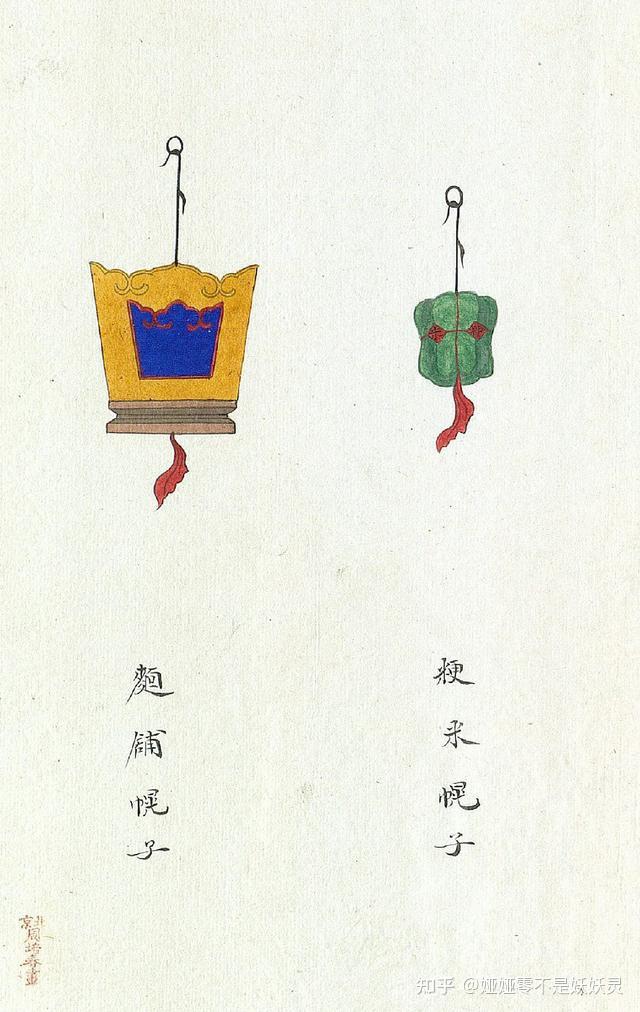 粳米幌子
麵鋪幌子
北京周培春畫
知乎 @娅娅零不是妖妖灵